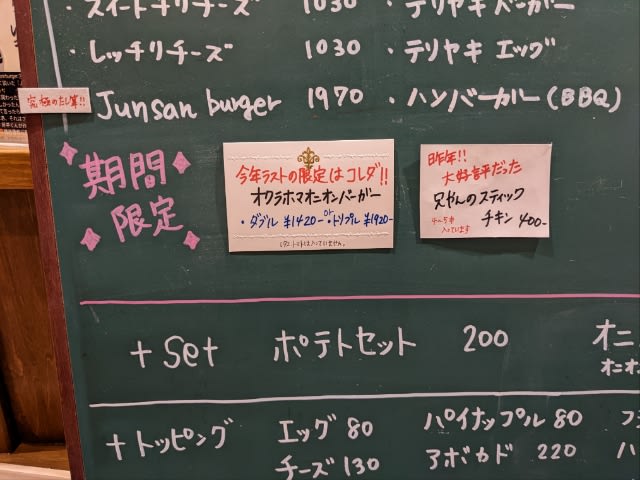 ・スイートチリチーズ 1030 ・テリヤキバーガー
・レッチリチーズ 1030 ・テリヤキエッグ
究極のたし算!! Junsan burger 1970 ・ハンバーガー(BBQ)
期間
限定
今年ラストの限定はコレダ!!
オクラホマオニオンバーガー
・ダブル ¥1420- or ・トリプル ¥1920-
昨年!!
大好評だった
兄やんのスティック
チキン 400-
4〜5本
入っています
+Set ポテトセット 200 オニ
オニオ
+トッピング エッグ 80 パイナップル 80
チーズ 130 アボカド 220